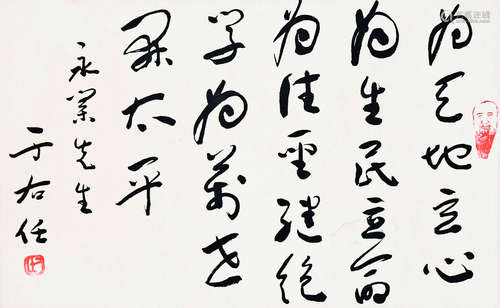 为天地立心
为生民立命
为往圣继绝
学为万世
开太平
永业先生
于右任